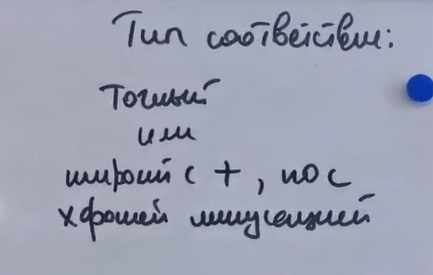 Тип соответствия:
Точный
или
широкий с +, но с
хорошей минусацией